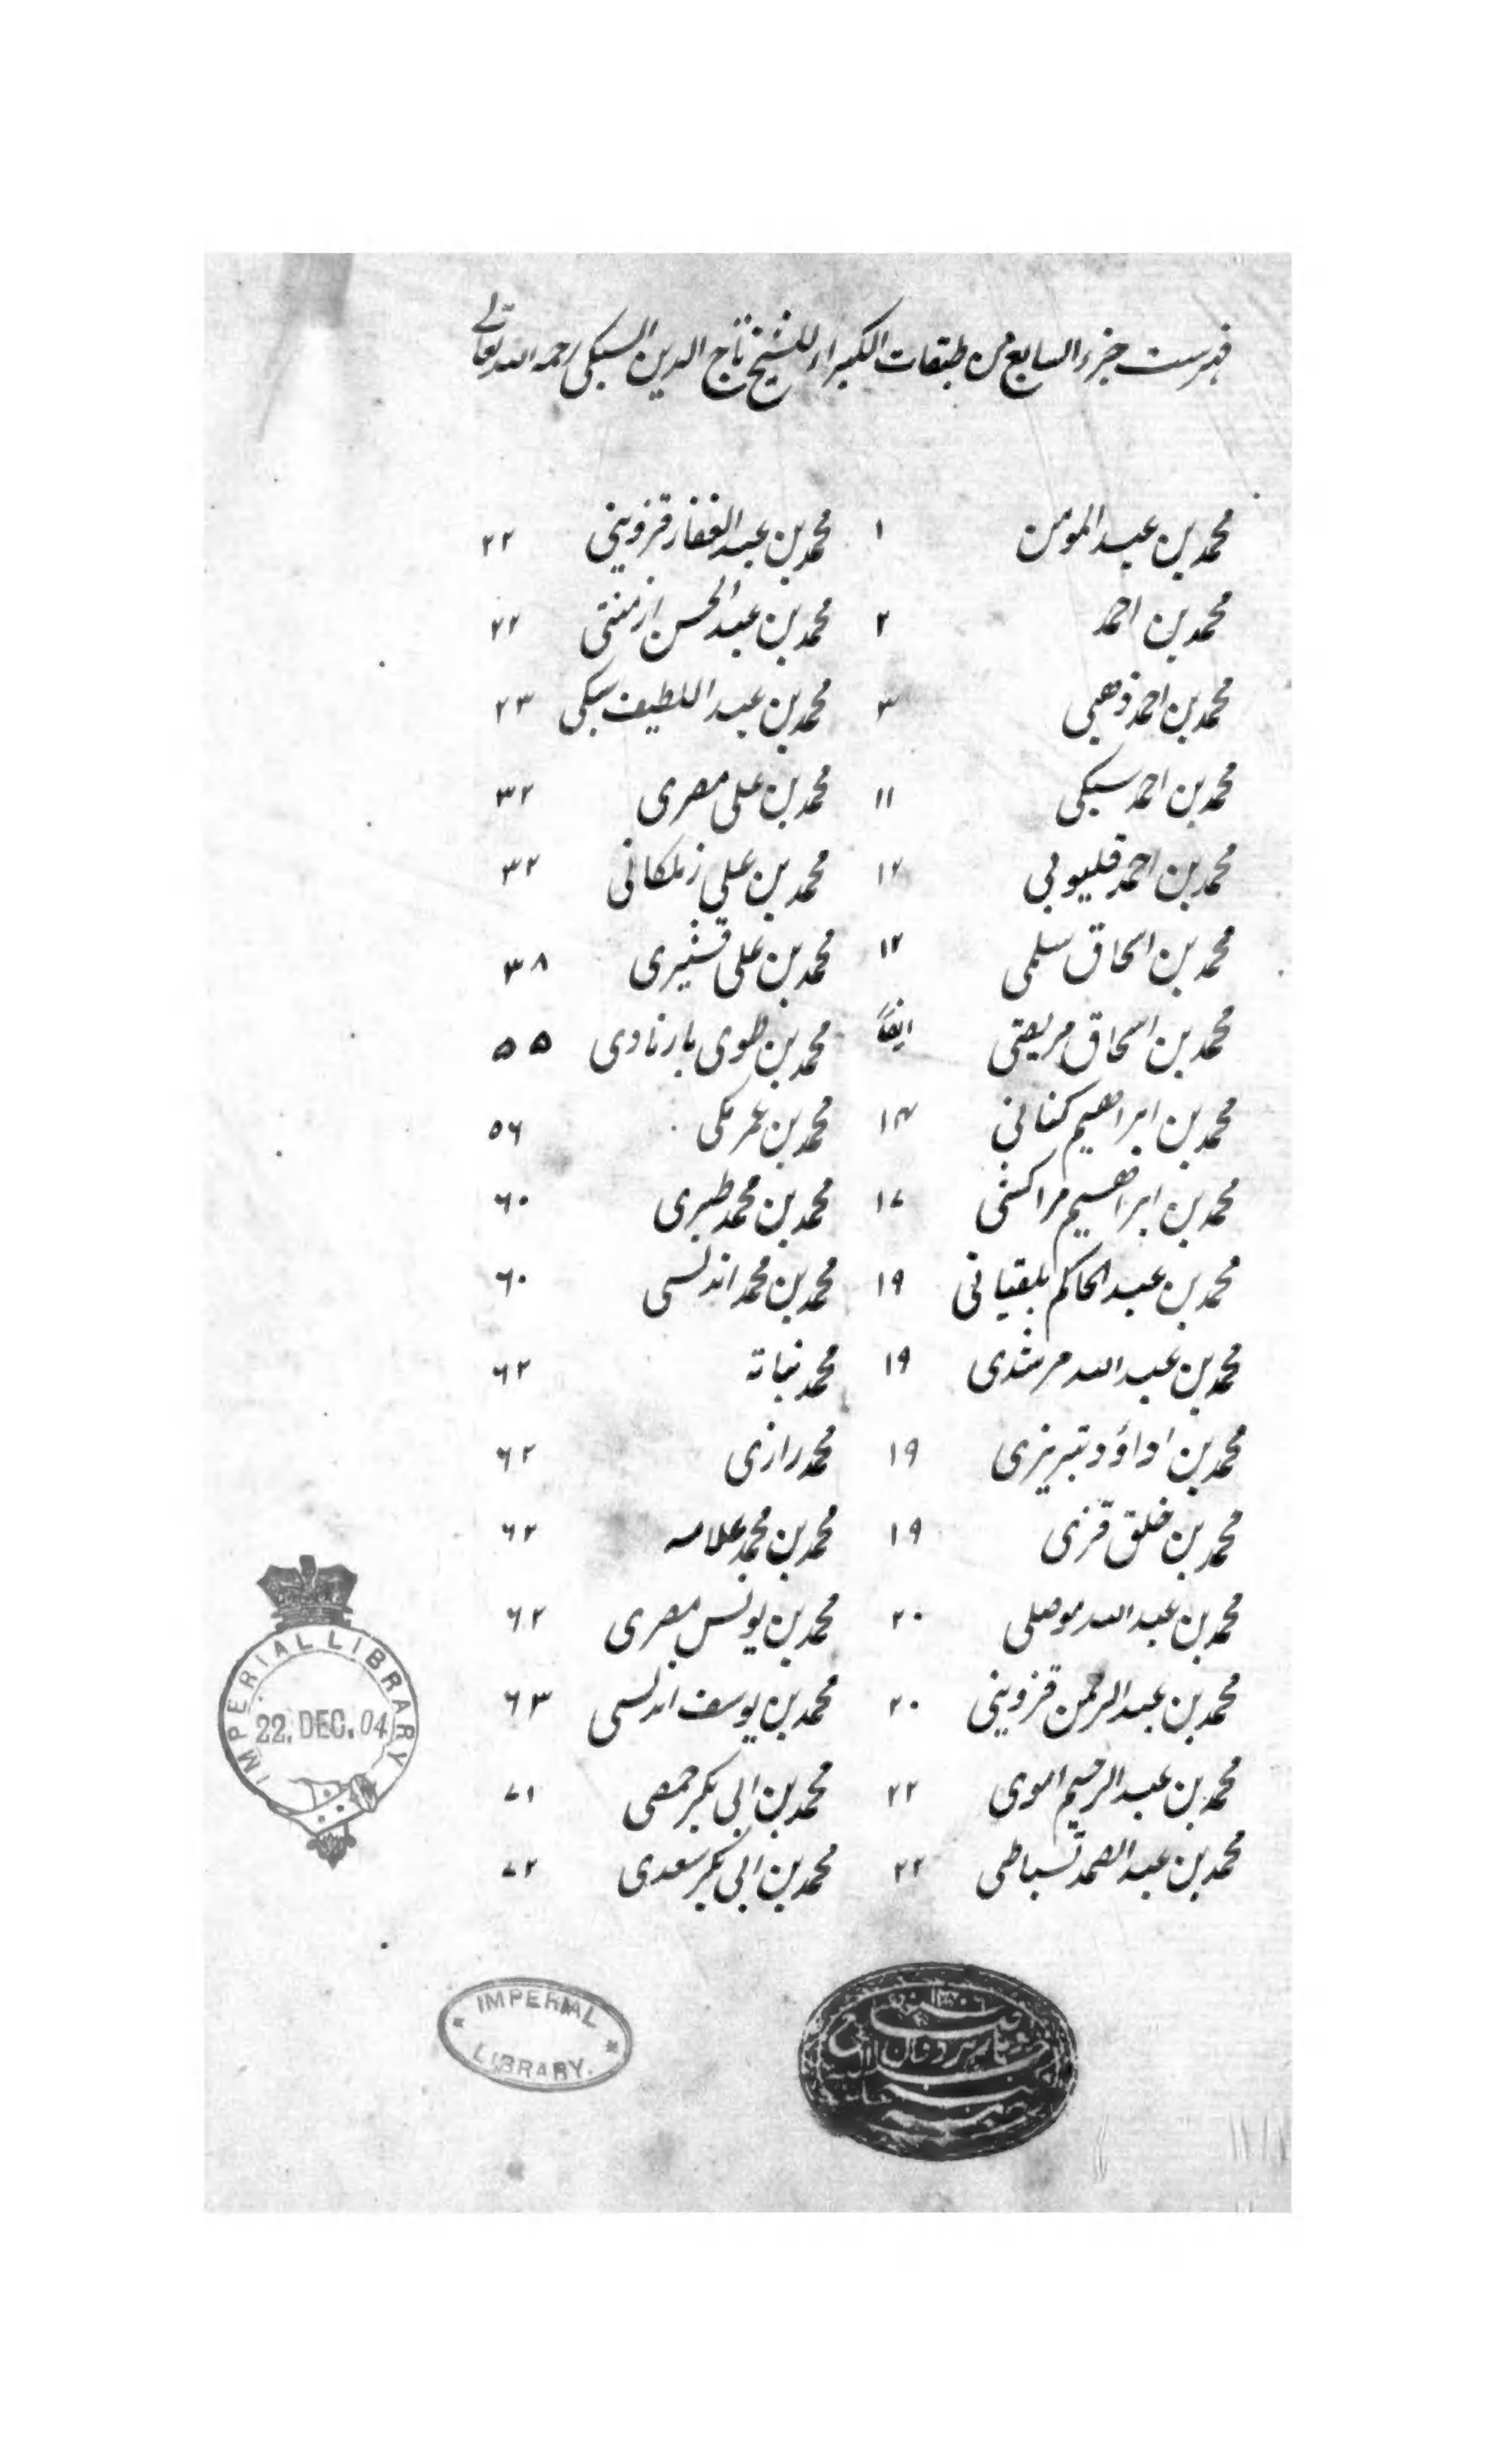 فہرست جزء السابع من طبقات الکبراء للشیخ تاج الدین السبکی رحمه الله تعالے
محمد بن عبد المومن ۱ محمد بن عبد الغفار قزوینی ۲۲
محمد بن احمد ۲ محمد بن عبد الحسن ارمنتی ۲۲
محمد بن احمد ذهبی ۳ محمد بن عبد اللطیف سبکی ۲۳
محمد بن احمد سبکی ۱۱ محمد بن علی مصری ۳۲
محمد بن احمد قلیوبی ۱۲ محمد بن علی زملکانی ۳۲
محمد بن اسحاق سلمی ۱۲ محمد بن علی قشیری ۳۸
محمد بن اسحاق مریعتی ایضاً محمد بن طوی بارنادی ۵۵
محمد بن ابراهیم کنانی ۱۴ محمد بن عمر مکی ۵۶
محمد بن ابراهیم مراکشی ۱۷ محمد بن محمد طبری ۶۰
محمد بن عبد الحاکم بلقیانی ۱۹ محمد بن محمد اندلسی ۶۰
محمد بن عبد الله مرشدی ۱۹ محمد نباتة ۶۲
محمد بن اداؤد تبریزی ۱۹ محمد رازی ۶۲
محمد بن خلق قزی ۱۹ محمد بن محمد علامه ۶۲
محمد بن عبد الله موصلی ۲۰ محمد بن یونس مصری ۶۲
محمد بن عبد الرحمن قزوینی ۲۰ محمد بن یوسف اندلسی ۶۳
محمد بن عبد الرحیم اموی ۲۲ محمد بن ابی بکر حمصی ۷۱
محمد بن عبد الصمد تسباطی ۲۲ محمد بن ابی بکر سعدی ۷۲
IMPERIAL LIBRARY
22. DEC. 04
IMPERIAL
LIBRARY.